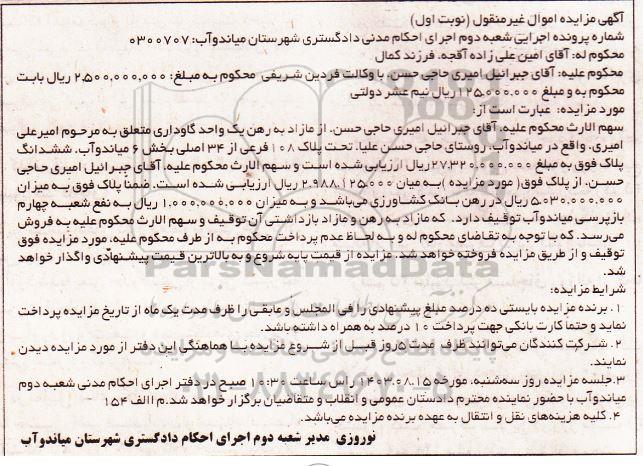 آگهی مزایده اموال غیرمنقول (نوبت اول)
شماره پرونده اجرایی شعبه دوم اجرای احکام مدنی دادگستری شهرستان میاندوآب: ۰۳۰۰۷۰۷
محکوم له: آقای امین علی زاده آقجه، فرزند کمال
محکوم علیه: آقای جبرائیل امیری حاجی حسن، با وکالت فردین شریفی محکوم به مبلغ: ۲,۵۰۰,۰۰۰,۰۰۰ ریال بابت
محکوم به و مبلغ ۱۲۵,۰۰۰,۰۰۰ ریال نیم عشر دولتی
مورد مزایده: عبارت است از:
سهم الارث محکوم علیه، آقای جبرائیل امیری حاجی حسن، از مازاد به رهن یک واحد گاوداری متعلق به مرحوم امیرعلی
امیری، واقع در میاندوآب، روستای حاجی حسن علیا، تحت پلاک ۱۰۸ فرعی از ۳۴ اصلی بخش ۶ میاندوآب، ششدانگ
پلاک فوق به مبلغ ۲۷,۳۲۰,۰۰۰,۰۰۰ ریال ارزیابی شده است و سهم الارث محکوم علیه، آقای جبرائیل امیری حاجی
حسن، از پلاک فوق( مورد مزایده )به میان ۲,۹۸۸,۱۲۵,۰۰۰ ریال ارزیابی شده است. ضمنا پلاک فوق به میزان
۵,۰۳۰,۰۰۰,۰۰۰ ریال در رهن بانک کشاورزی می‌باشد و به میزان ۱,۰۰۰,۰۰۰,۰۰۰ ریال به نفع شعبه چهارم
بازپرسی میاندوآب توقیف دارد. که مازاد به رهن و مازاد بازداشتی آن توقیف و سهم الارث محکوم علیه به فروش
می‌رسد. که با توجه به تقاضای محکوم له و به لحاظ عدم پرداخت محکوم به از طرف محکوم علیه، مورد مزایده فوق
توقیف و از طریق مزایده فروخته خواهد شد. مزایده از قیمت پایه شروع و به بالاترین قیمت پیشنهادی واگذار خواهد
شد.
شرایط مزایده:
۱. برنده مزایده بایستی ده درصد مبلغ پیشنهادی را فی المجلس و مابقی را ظرف مدت یک ماه از تاریخ مزایده پرداخت
نماید و حتما کارت بانکی جهت پرداخت ۱۰ درصد به همراه داشته باشد.
۲. شرکت کنندگان می‌توانند ظرف مدت ۵روز قبل از شروع مزایده با هماهنگی این دفتر از مورد مزایده دیدن
نمایند.
۳.جلسه مزایده روز سه‌شنبه، مورخه ۱۴۰۳.۰۸.۱۵ راس ساعت ۱۰:۳۰ صبح در دفتر اجرای احکام مدنی شعبه دوم
میاندوآب با حضور نماینده محترم دادستان عمومی و انقلاب و متقاضیان برگزار خواهد شد.م االف ۱۵۴
۴. کلیه هزینه‌های نقل و انتقال به عهده برنده مزایده می‌باشد.
نوروزی مدیر شعبه دوم اجرای احکام دادگستری شهرستان میاندوآب
ParsNamadData
۰۲۱-۸۸۳۴۹۶۷۰-۵